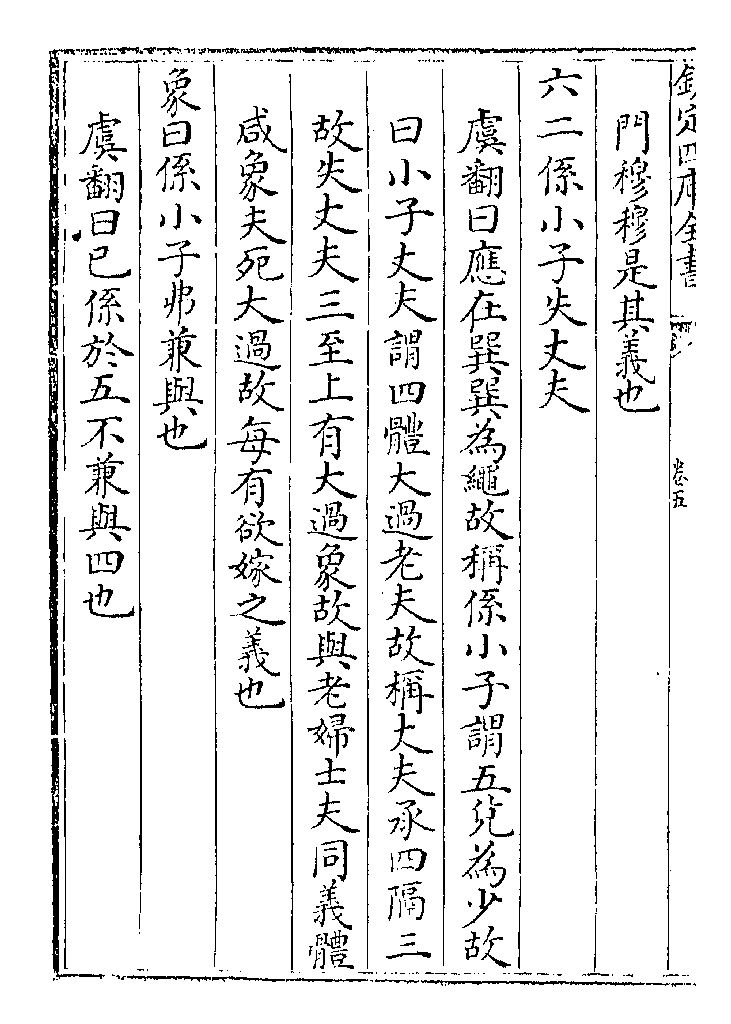 欽定四庫全書
卷五
門穆穆是其義也
六二係小子失丈夫
虞翻曰應在巽巽為繩故稱係小子謂五兌為少故
曰小子丈夫謂四體大過老夫故稱丈夫承四隔三
故失丈夫三至上有大過象故與老婦士夫同義體
咸象夫死大過故每有欲嫁之義也
象曰係小子弗兼與也
虞翻曰已係於五不兼與四也